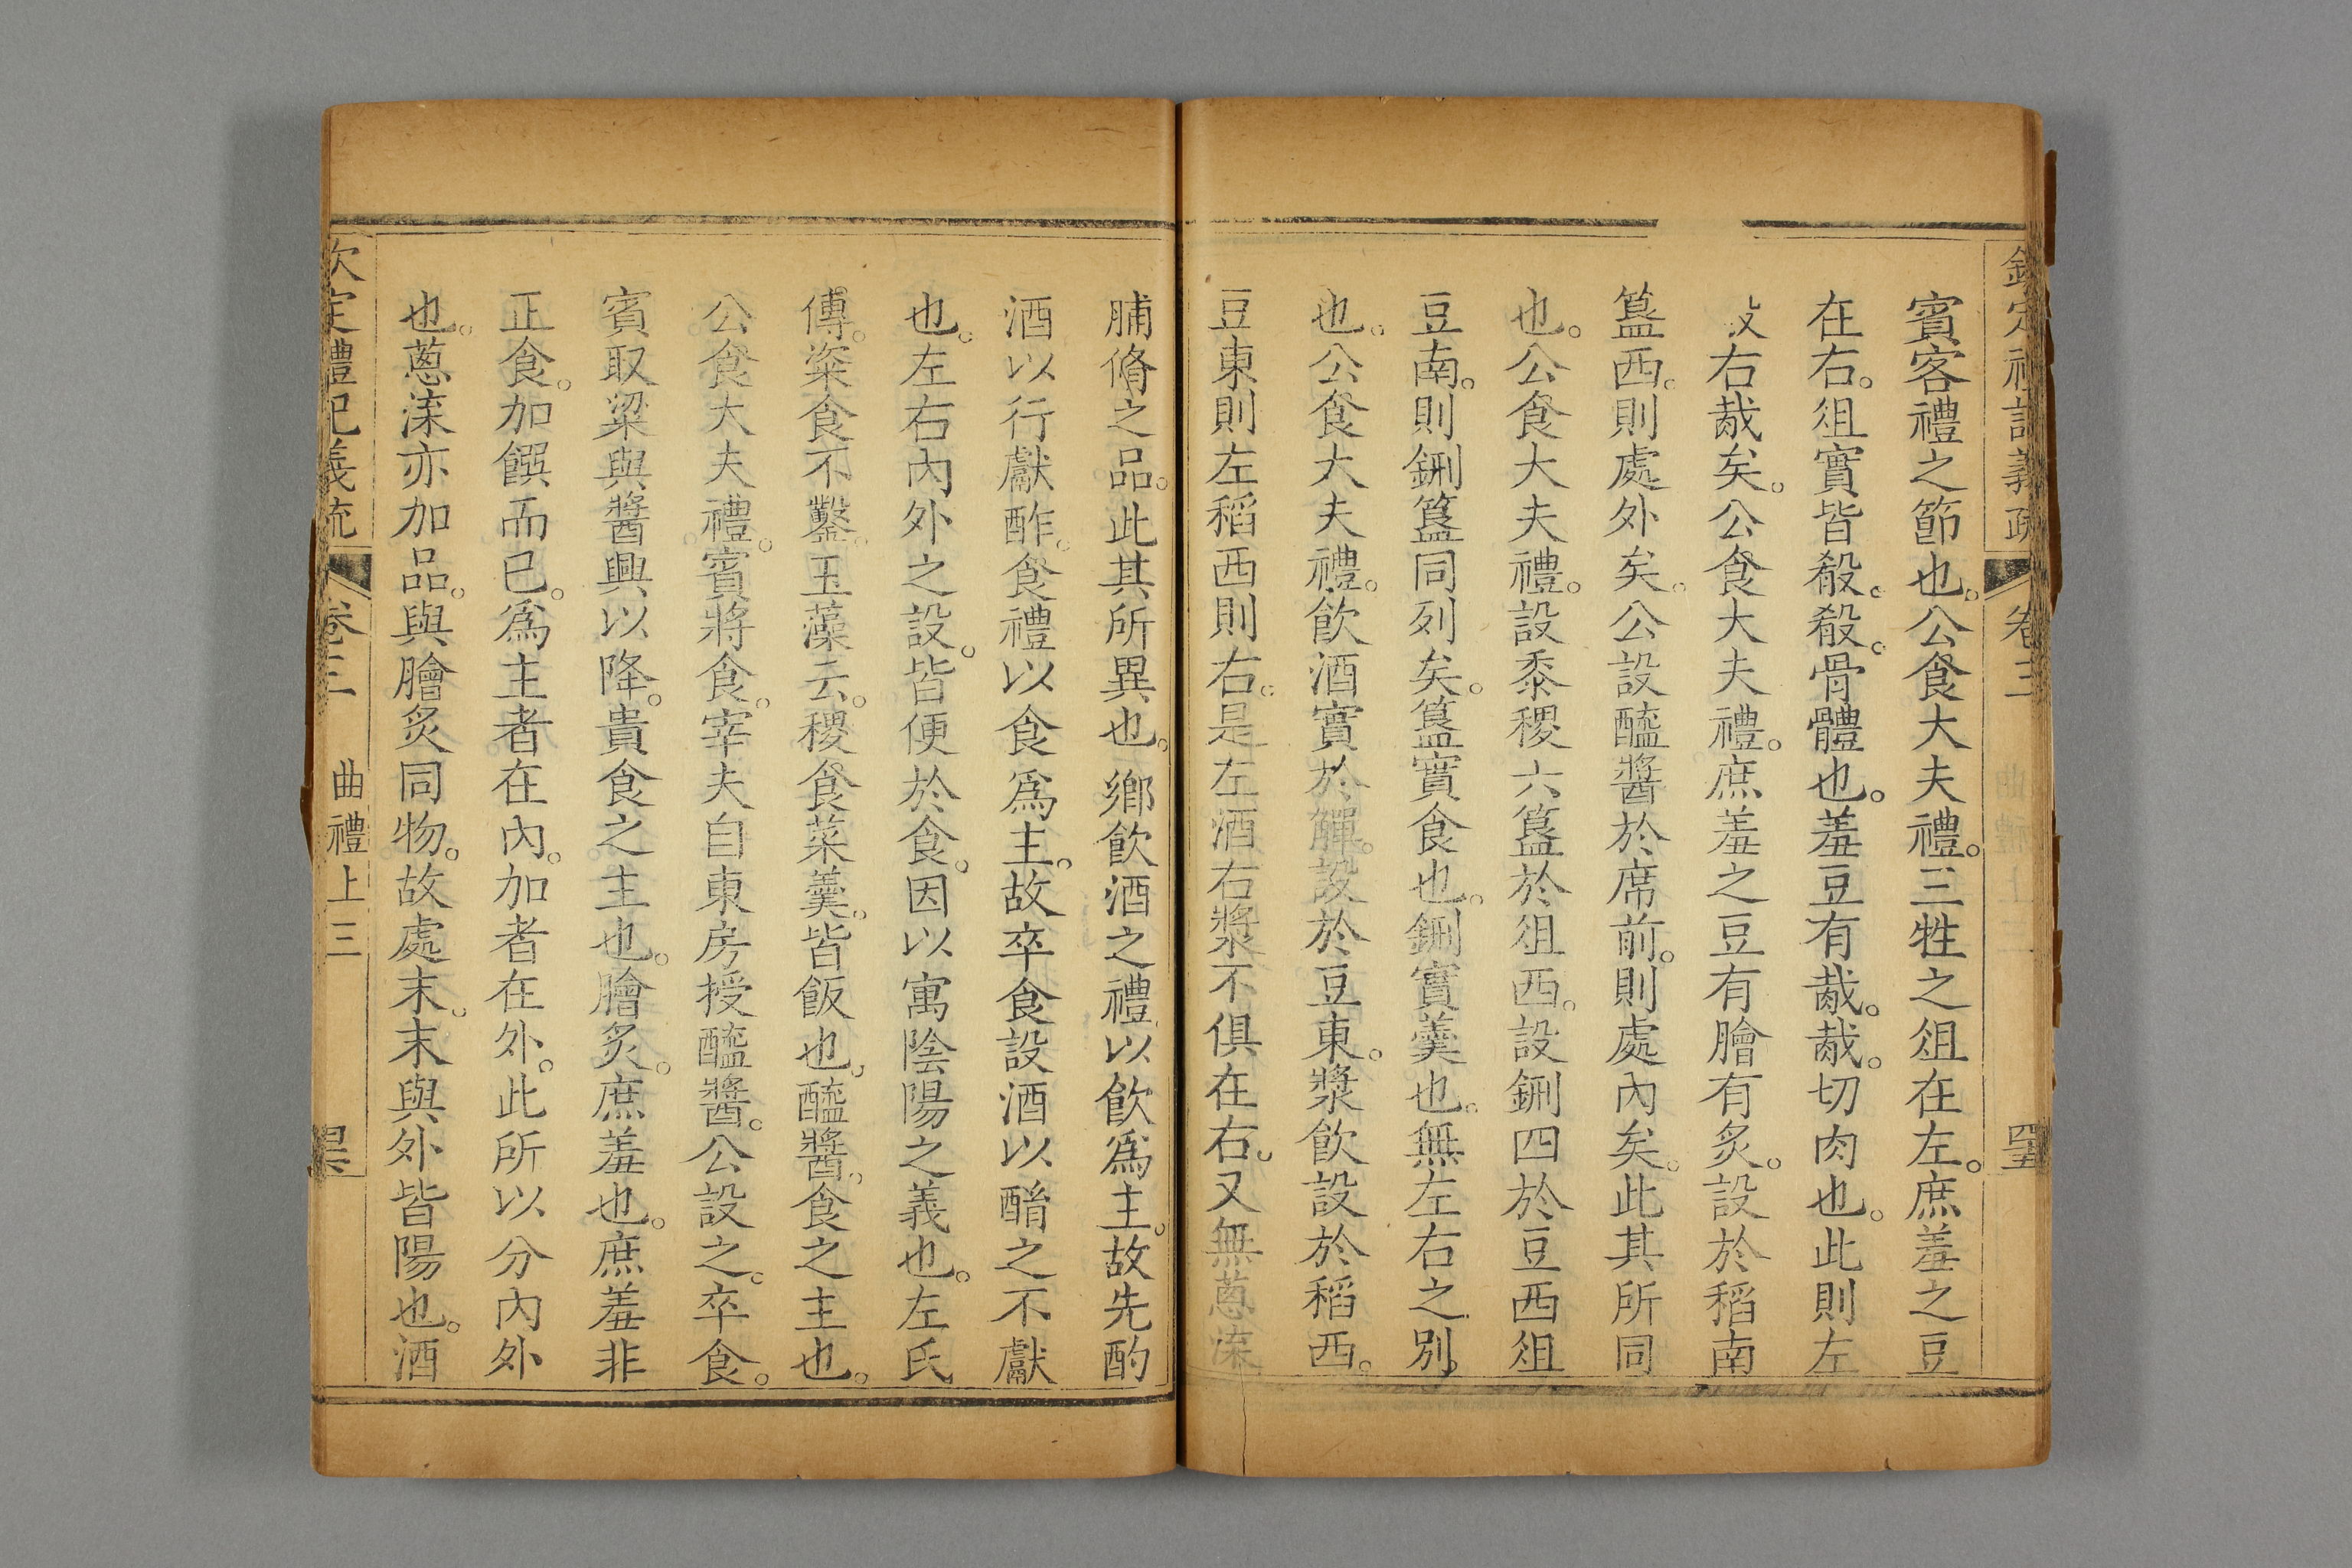 欽定禮記義疏 卷三
賓客禮之節也。公食大夫禮。三牲之俎在左。庶羞之豆
在右。俎實皆殽。殽。骨體也。羞豆有胾。胾。切肉也。此則左
殽右胾矣。公食大夫禮。庶羞之豆有膾有炙。設於稻南
簋西。則處外矣。公設醯醬於席前。則處內矣。此其所同
也。公食大夫禮。設黍稷六簋於俎西。設鉶四於豆西俎
豆南。則鉶簋同列矣。簋實食也。鉶實羹也。無左右之別。
也。公食大夫禮。飲酒實於觶。設於豆東。漿飲設於稻西。
豆東則左稻西則右。是左酒右漿不俱在右。又無蔥㳿
脯脩之品。此其所異也。鄉飲酒之禮以飲為主。故先酌
酒以行獻酢。食禮以食為主。故卒食設酒以酳之不獻
也。左右內外之設。皆便於食。因以寓陰陽之義也。左氏
傳。粢食不鑿。玉藻云。稷食菜羹。皆飯也。醯醬。食之主也。
公食大夫禮。賓將食。宰夫自東房授醯醬。公設之。卒食。
賓取粱與醬興以降。貴食之主也。膾炙。庶羞也。庶羞非
正食。加饌而已。為主者在內。加者在外。此所以分內外
也。蔥㳿亦加品。與膾炙同物。故處末。末與外皆陽也。酒
欽定禮記義疏 卷三 曲禮上三